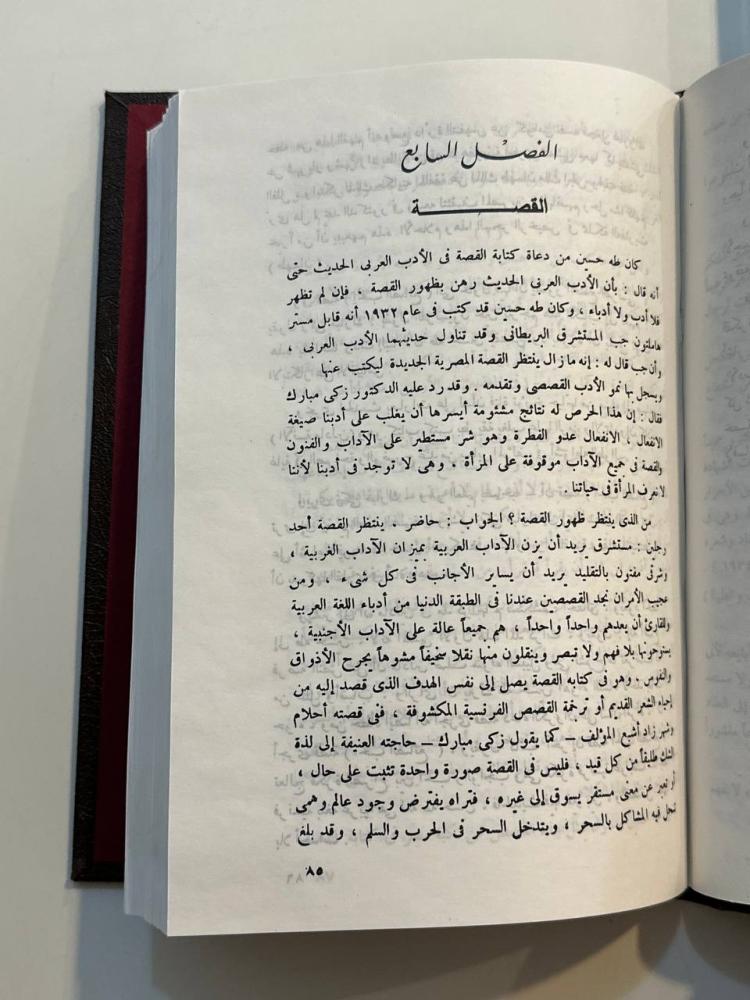 الفصل السابع
القصة
كان طه حسين من دعاة كتابة القصة فى الأدب العربى الحديث حتى
أنه قال : بأن الأدب العربى الحديث رهن بظهور القصة ، فإن لم تظهر
فلا أدب ولا أدباء ، وكان طه حسين قد كتب فى عام ١٩٣٢ أنه قابل مستر
هاملتون جب المستشرق البريطانى وقد تناول حديثهما الأدب العربى ،
وأن جب قال له : إنه مازال ينتظر القصة المصرية الجديدة ليكتب عنها
ويسجل بها نمو الأدب القصصى وتقدمه . وقد رد عليه الدكتور زكى مبارك
فقال : إن هذا الحرص له نتائج مشئومة أيسرها أن يغلب على أدبنا صيغة
الانفعال ، الانفعال عدو الفطرة وهو شر مستطير على الآداب والفنون
والقصة فى جميع الآداب موقوفة على المرأة ، وهى لا توجد فى أدبنا لأننا
لا نعرف المرأة فى حياتنا .
من الذى ينتظر ظهور القصة ؟ الجواب : حاضر . ينتظر القصة أحد
رجلين : مستشرق يريد أن يزن الآداب العربية بميزان الآداب الغربية ،
وشرقى مفتون بالتقليد يريد أن يساير الأجانب فى كل شىء ، ومن
عجب الأمران نجد القصصين عندنا فى الطبقة الدنيا من أدباء اللغة العربية
وللقارئ أن يعدهم واحداً واحداً ، هم جميعاً عالة على الآداب الأجنبية ،
يستوحونها بلا فهم ولا تبصر وينقلون منها نقلا سخيفاً مشوهاً يجرح الأذواق
والنفوس . وهو فى كتابه القصة يصل إلى نفس الهدف الذى قصد إليه من
إحياء الشعر القديم أو ترجمة القصص الفرنسية المكشوفة ، فنى قصته أحلام
وشهر زاد أشبع المؤلف – كما يقول زكى مبارك – حاجته العنيفة إلى لذة
الشك طليقاً من كل قيد ، فليس فى القصة صورة واحدة تثبت على حال ،
أو تعبر عن معنى مستقر يسوق إلى غيره ، فتراه يفترض وجود عالم وهمى
تحل فيه المشاكل بالسحر ، ويتدخل السحر فى الحرب والسلم ، وقد بلغ
٨٥